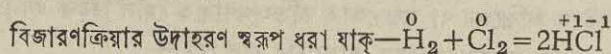 বিজারণক্রিয়ার উদাহরণ স্বরূপ ধরা যাক—H₂⁰+Cl₂⁰=2H⁺¹Cl⁻¹